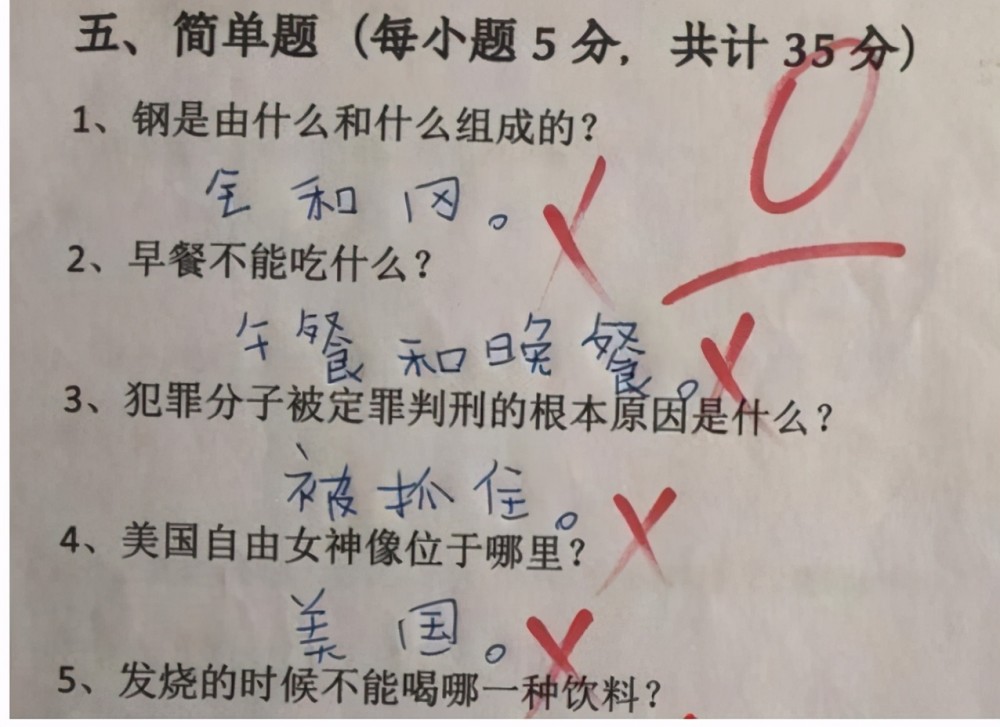 五、简单题（每小题 5 分，共计 35 分）
0
1、钢是由什么和什么组成的？
钅和冈。
2、早餐不能吃什么？
午餐和晚餐。
3、犯罪分子被定罪判刑的根本原因是什么？
被抓住。
4、美国自由女神像位于哪里？
美国。
5、发烧的时候不能喝哪一种饮料？